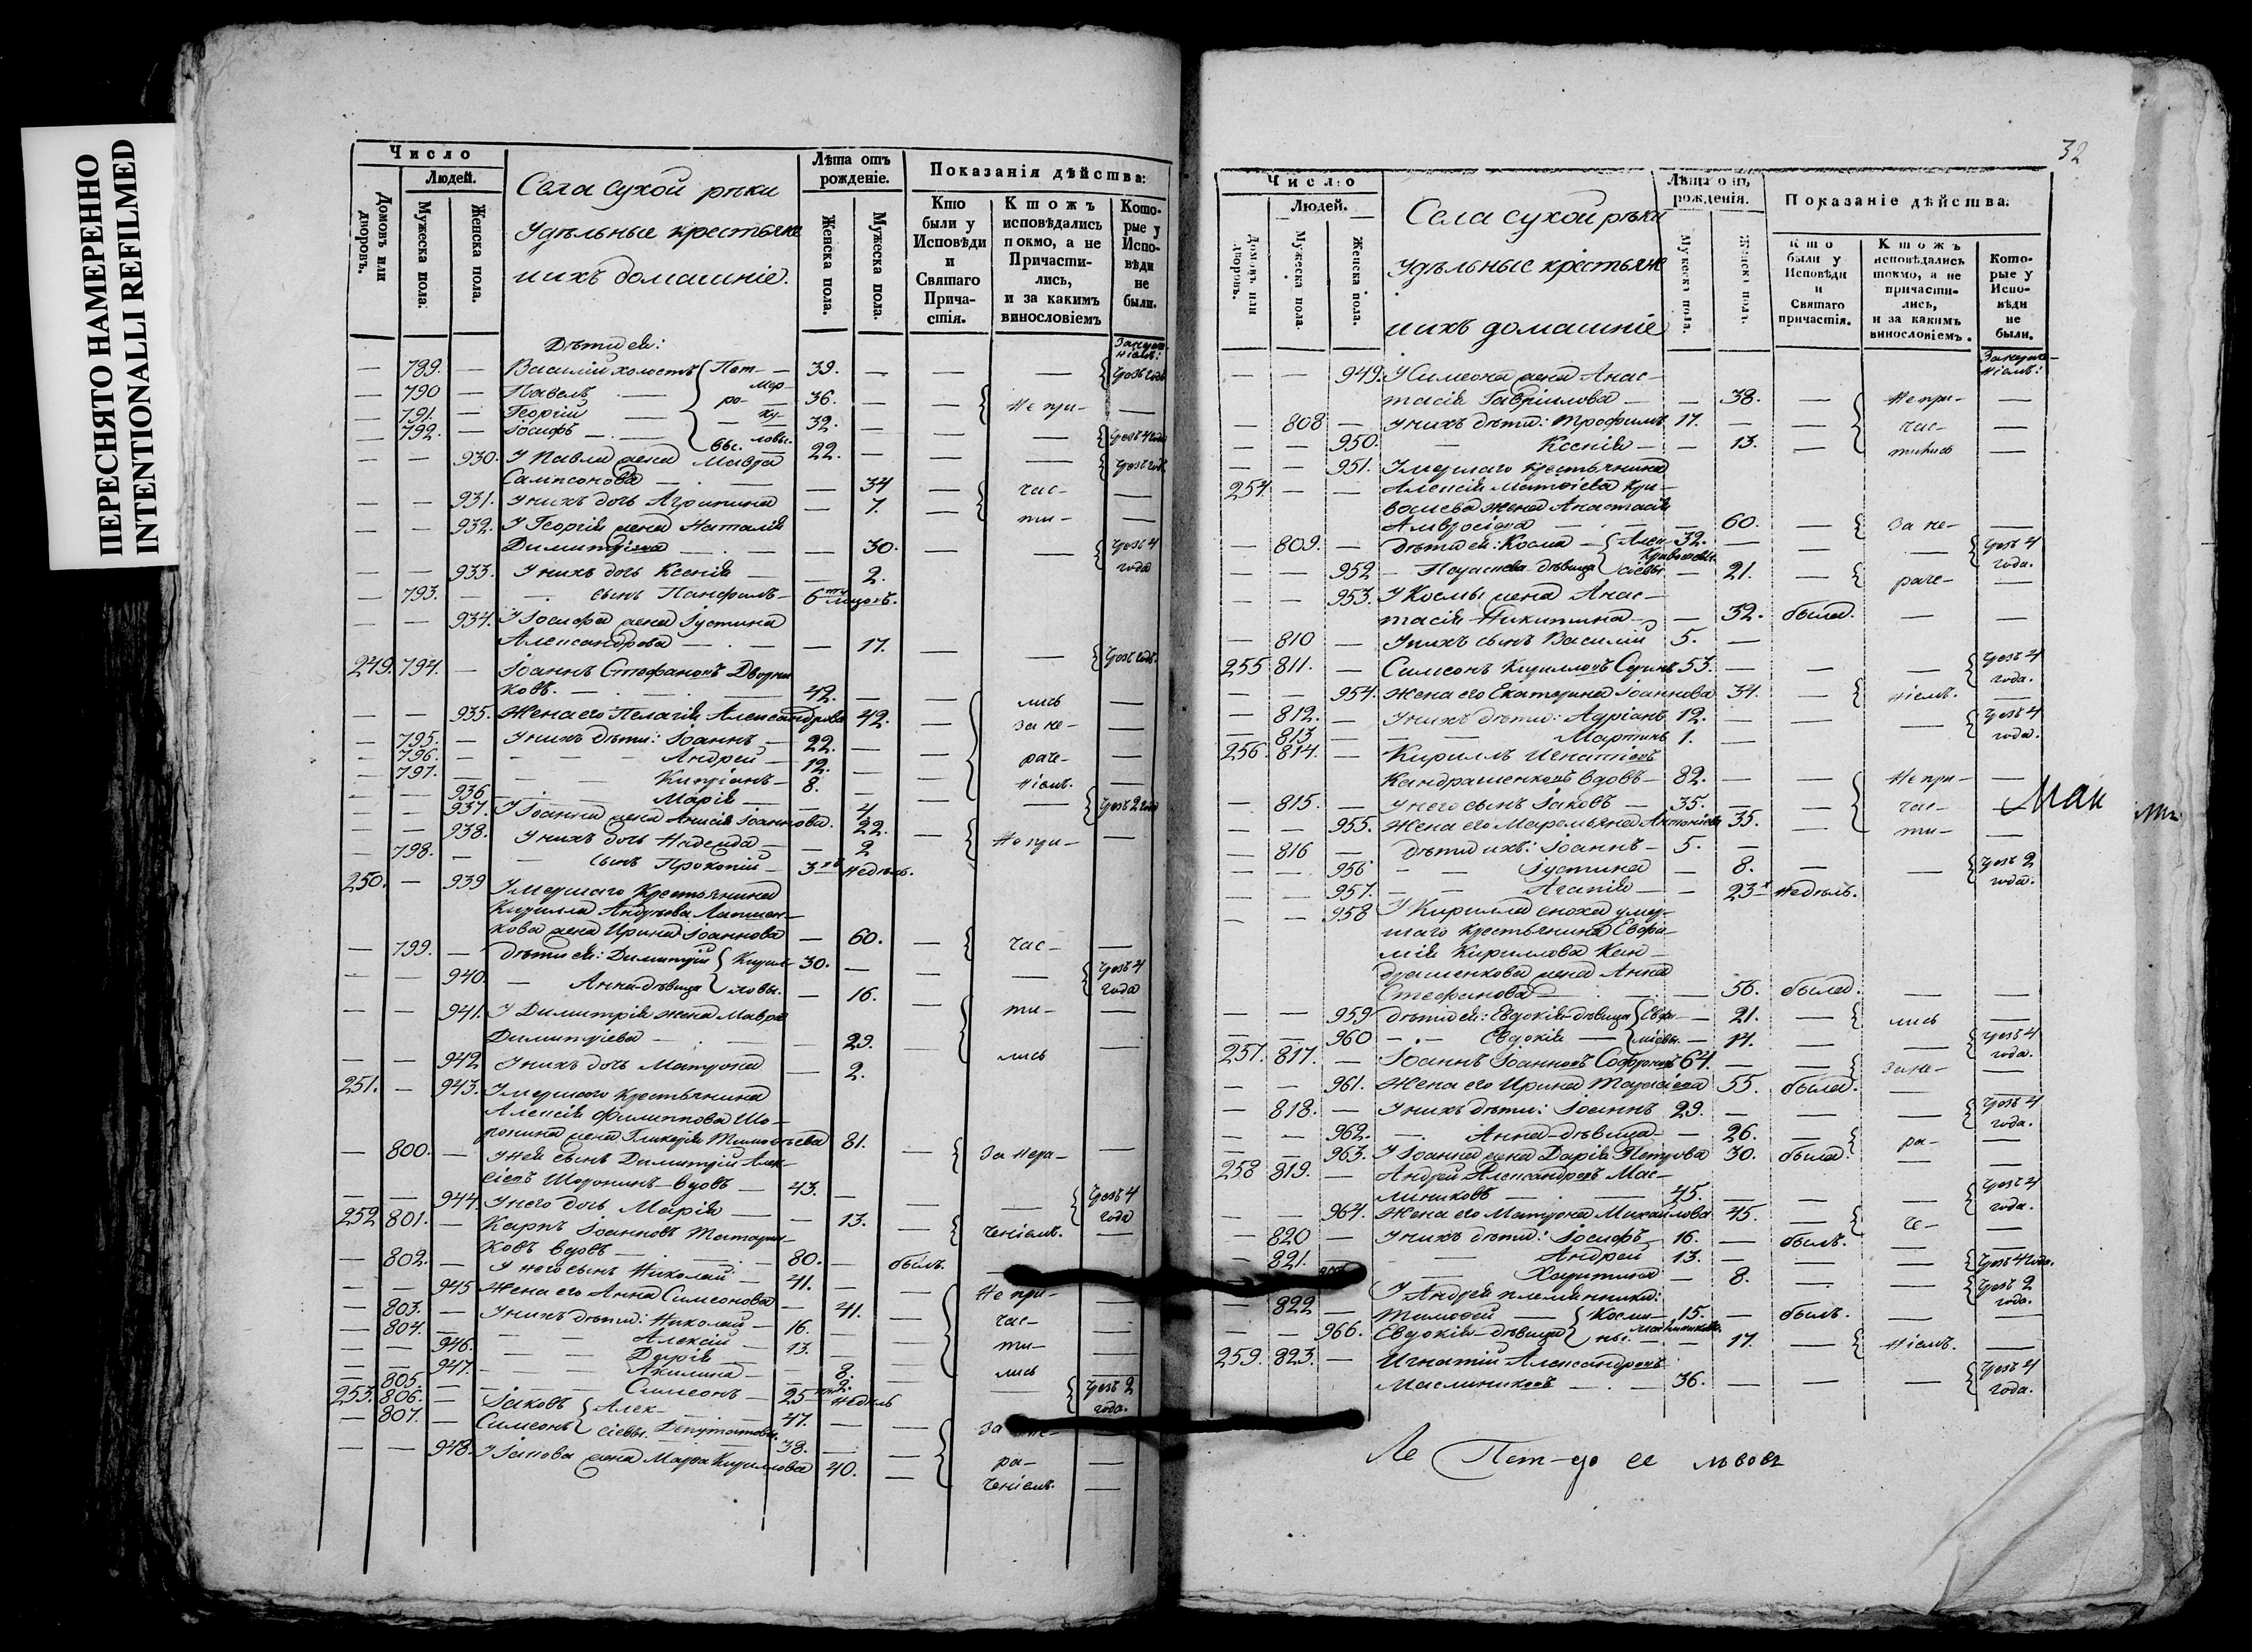 ПЕРЕСНЯТО НАМЕРЕННО
INTENTIONALLI REFILMED
Число
Людей.
Домовъ или дворовъ.
Мужеска пола.
Женска пола.
Села Сухой рѣки
Удѣльные крестьяне
и ихъ домашніе.
Лѣта отъ рожденіе.
Женска пола.
Мужеска пола.
Показанія дѣйства:
Кто были у Исповѣди и Святаго Причастія.
Ктожъ исповѣдались покмо, а не Причастились, и за какимъ винословіемъ
Которые у Исповѣди не были.
Дѣти ея:
— 789. — Василій холостъ Пет- 39.
— 790 — Павелъ ро- 36.
— 791. — Георгій 32. Не при-
— 792. — Іосифъ вы. 22.
— — 930. У Павла жена Мавра
Сампсонова 34
— — 931. У нихъ дочь Агрипина 7. час-
— — 932. У Георгія жена Наталія ти-
Димитріева 30. чрезъ 4 года
— — 933. У нихъ дочь Ксенія 2.
— 793. — сынъ Панфилъ 6
— — 934. У Іосифа жена Іустина
Александрова 17.
249. 794. — Іоаннъ Стефановъ Дворни
ковъ. 42. лись
— — 935. Жена его Пелагія Александрова 42. За не-
— 795. — У нихъ дѣти: Іоаннъ 22. раче-
— 796. — Андрей 12.
— 797. — Кипріанъ 8. ніемъ.
— — 936 Марія 4
— — 937. У Іоанна жена Анисія Іоаннова. 22. чрезъ 2 года
— — 938. У нихъ дочь Надежда 2 Не при-
— 798. — сынъ Прокопій 3 недѣль.
250. — 939 Умершаго Крестьянина
Кирилла Андрѣева
кова жена Ирина Іоаннова 60. час-
— 799. — Дѣти ея: Димитрій Кирил- 30.
— — 940. Анна дѣвица ловы. 16. чрезъ 4 года
— — 941. У Димитрія жена Мавра ти-
Димитріева 29.
— — 942 У нихъ дочь Матрона 2. лись
251. — 943. Умершаго крестьянина
Алексія Филиппова Шо-
ронина жена Гликерія Тимофѣева 81.
— 800. — У ней сынъ Димитрій Алек- За нера-
сіевъ Шоронинъ вдовъ 43.
— — 944. У него дочь Марія 13. чрезъ 4 года
252 801. — Карпъ Іоанновъ Татарин- ченіемъ.
ковъ вдовъ 80. былъ.
— 802. — У него сынъ Николай 41.
— — 945 Жена его Анна Симеонова 41. Не при-
— 803. — У нихъ дѣти: Николай 16. час-
— 804. — Алексій 13. ти-
— — 946. Дарія 8.
— — 947. Акилина 2. лись
— 805. — Симеонъ 25 недѣль
253. 806. — Іаковъ Алек- 47. чрезъ 2 года.
— 807. — Симеонъ сіевы. Депутатовы. 38. За
— — 948. У Іакова жена Марфа Кириллова 40. ра-
ченіемъ.
32
Число
Людей.
Домовъ или дворовъ.
Мужеска пола.
Женска пола.
Села Сухой рѣки
Удѣльные крестьяне
и ихъ домашніе
Лѣта отъ рожденія.
Мужеска пола.
Женска пола.
Показаніе дѣйства.
Кто были у Исповѣди и Святаго причастія.
Ктожъ исповѣдались токмо, а не причастились, и за какимъ винословіемъ.
Которые у Исповѣди не были.
— — 949. У Симеона жена Анас-
тасія Гавріилова 38. Не при-
— 808 — У нихъ дѣти: Трофимъ 17. час-
— — 950. Ксенія 13. тились
— — 951. Умершаго крестьянина
254. — — Алексія Матвіева Кри-
вошеева жена Анастасія
Амвросіева 60. За не-
— 809. — Дѣти ея: Косма Алек- 32. чрезъ 4 года.
— — 952 дѣвица сіевы 21. раче-
— — 953. У Космы жена Анас-
тасія Никитина 32. была.
— 810 — У нихъ сынъ Василій 5.
255 811. — Симеонъ Кирилловъ 53. чрезъ 4 года.
— — 954. Жена его Екатерина Іоаннова 34. ніемъ.
— 812. — У нихъ дѣти: Адріанъ 12. чрезъ 4 года.
— 813 — Мартинъ 1.
256. 814. — Кириллъ Игнатіевъ
Кандрашенковъ вдовъ 82. Не при-
— 815. — У него сынъ Іаковъ 35. час-
— — 955. Жена его Маремьяна Антоніева 35. ти-
— 816 — Дѣти ихъ: Іоаннъ 5.
— — 956 Іустина 8. чрезъ 2 года.
— — 957. Агапія 23 недѣль.
— — 958 У Кирилла сноха умер-
шаго крестьянина Евфи-
мія Кириллова Кан-
драшенкова жена Анна
Стефанова 56. была.
— — 959 Дѣти ея: Евдокія дѣвица Евфи- 21. лись
— — 960 Евдокія міевы. 14. чрезъ 4 года.
257. 817. — Іоаннъ Іоанновъ Софроновъ 64. За не-
— — 961. Жена его Ирина Тарасіева 55. была.
— 818. — У нихъ дѣти: Іоаннъ 29. чрезъ 4 года.
— — 962. Анна дѣвица 26. ра-
— — 963. У Іоанна жена Дарія Петрова 30. была.
258 819. — Андрей Александровъ Мас-
линиковъ 45. чрезъ 4 года.
— — 964. Жена его Матрона Михаилова 45. че-
— 820 — У нихъ дѣти: Іосифъ 16. былъ.
— 821. — Андрей 13. чрезъ 4 года.
Харитина 8. чрезъ 2 года.
У Андрея племянники:
— 822 — Тимофей Косми- 15. былъ.
— — 966. Евдокія дѣвица ны. 17. ніемъ.
259. 823. — Игнатій Александровъ
Маслиниковъ 36. чрезъ 4 года.